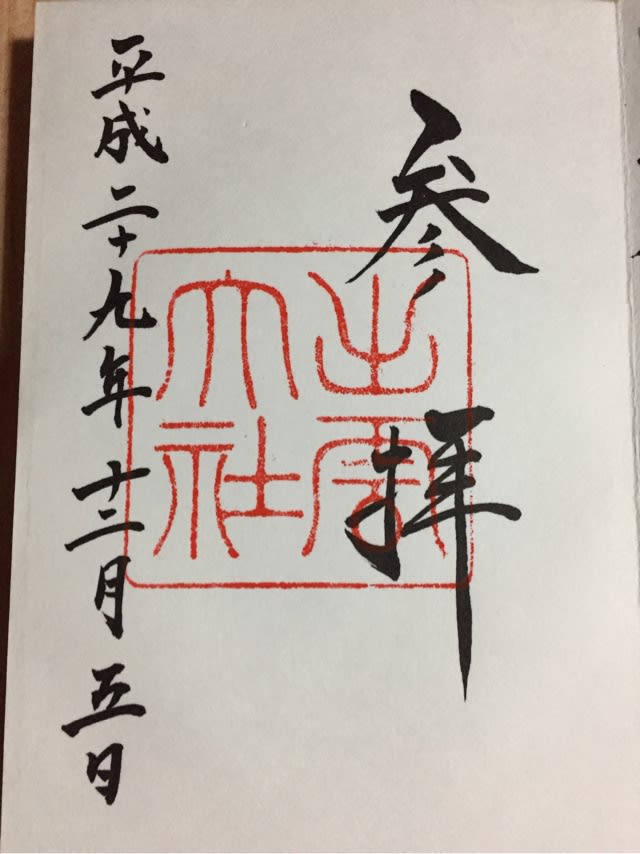 参拝
出雲
大社
平成二十九年十二月五日